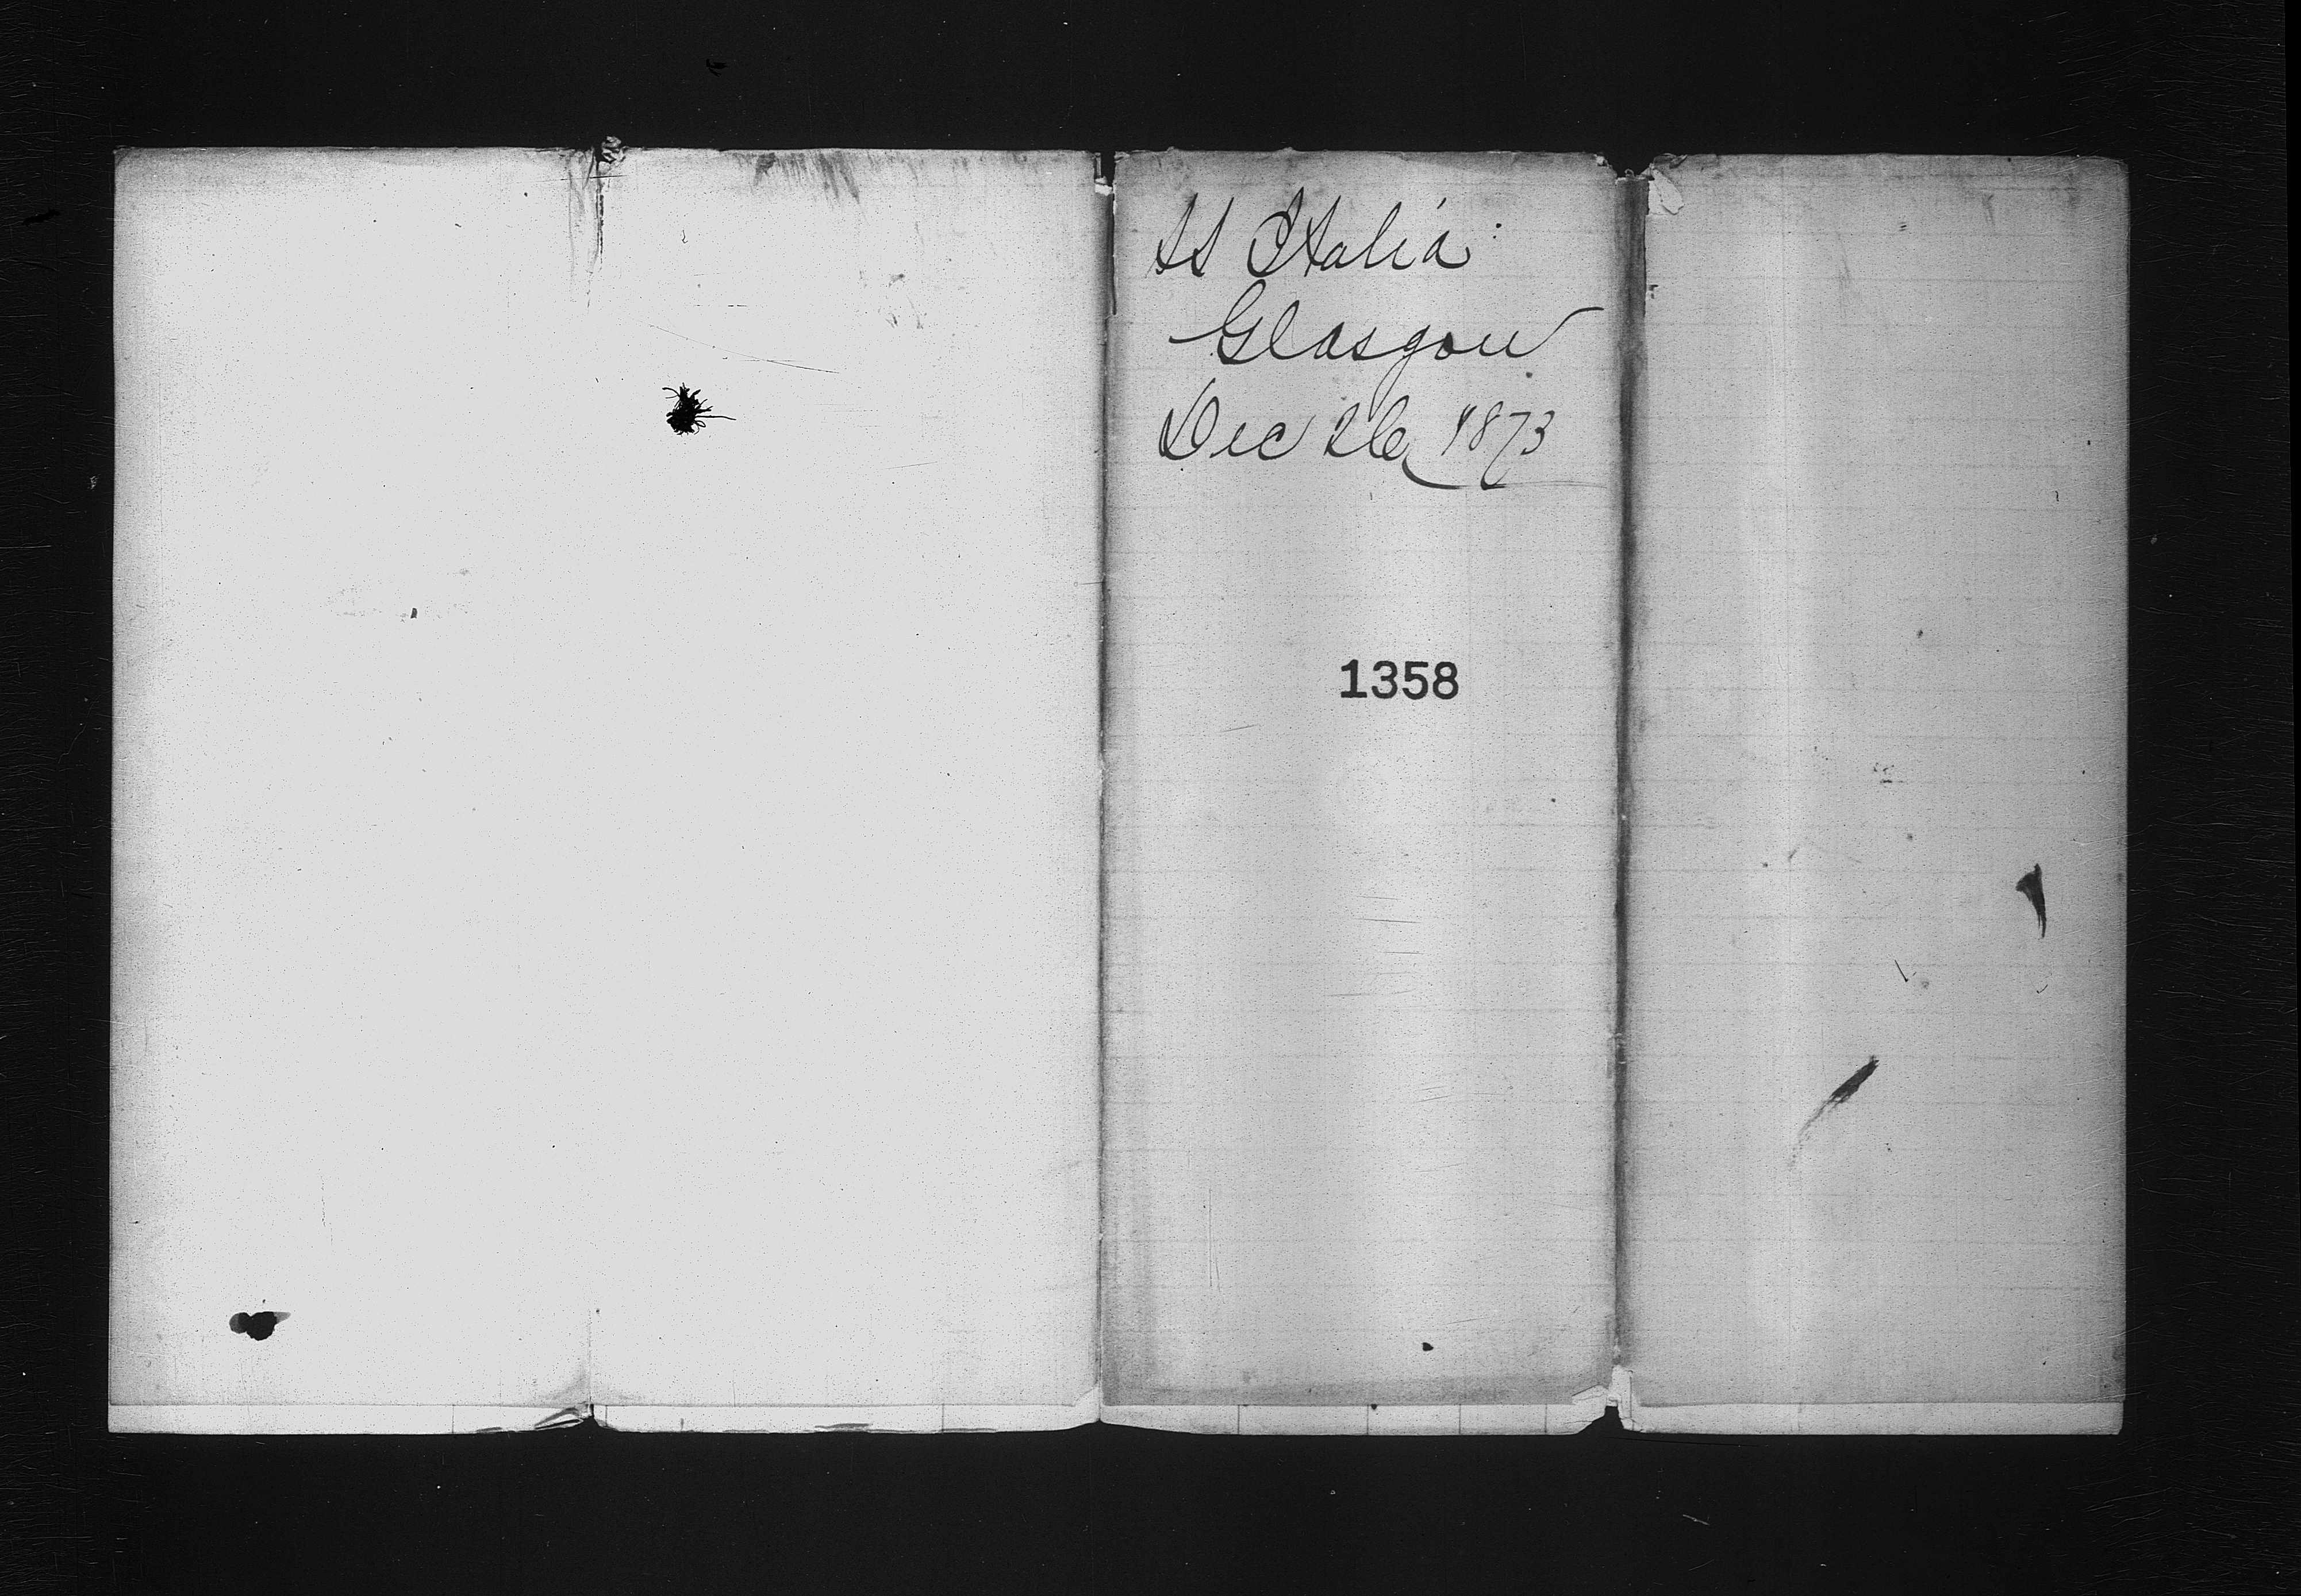 SS Italia
Glasgow
Dec 26 1873
1358